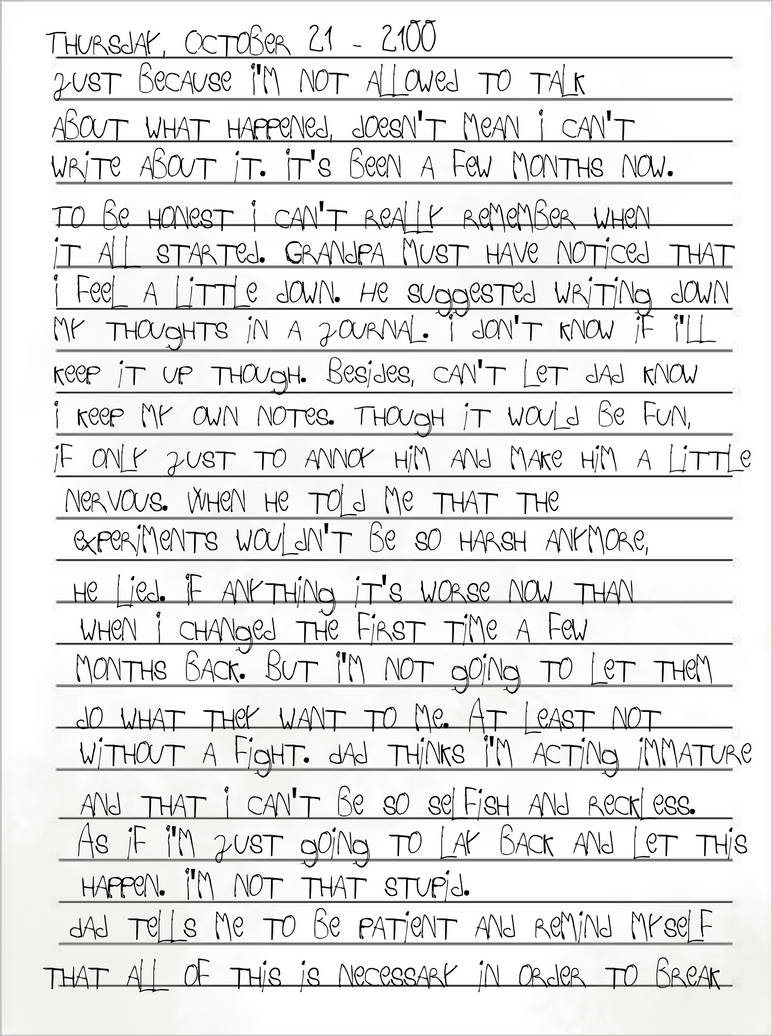 THURSDAY, OCTOBER 21 - 2100
JUST BECAUSE I'M NOT ALLOWED TO TALK
ABOUT WHAT HAPPENED, DOESN'T MEAN I CAN'T
WRITE ABOUT IT. IT'S BEEN A FEW MONTHS NOW.
TO BE HONEST I CAN'T REALLY REMEMBER WHEN
IT ALL STARTED. GRANDPA MUST HAVE NOTICED THAT
I FEEL A LITTLE DOWN. HE SUGGESTED WRITING DOWN
MY THOUGHTS IN A JOURNAL. I DON'T KNOW IF I'LL
KEEP IT UP THOUGH. BESIDES, CAN'T LET DAD KNOW
I KEEP MY OWN NOTES. THOUGH IT WOULD BE FUN,
IF ONLY JUST TO ANNOY HIM AND MAKE HIM A LITTLE
NERVOUS. WHEN HE TOLD ME THAT THE
EXPERIMENTS WOULDN'T BE SO HARSH ANYMORE,
HE LIED. IF ANYTHING IT'S WORSE NOW THAN
WHEN I CHANGED THE FIRST TIME A FEW
MONTHS BACK. BUT I'M NOT GOING TO LET THEM
DO WHAT THEY WANT TO ME. AT LEAST NOT
WITHOUT A FIGHT. DAD THINKS I'M ACTING IMMATURE
AND THAT I CAN'T BE SO SELFISH AND RECKLESS.
AS IF I'M JUST GOING TO LAY BACK AND LET THIS
HAPPEN. I'M NOT THAT STUPID.
DAD TELLS ME TO BE PATIENT AND REMIND MYSELF
THAT ALL OF THIS IS NECESSARY IN ORDER TO BREAK